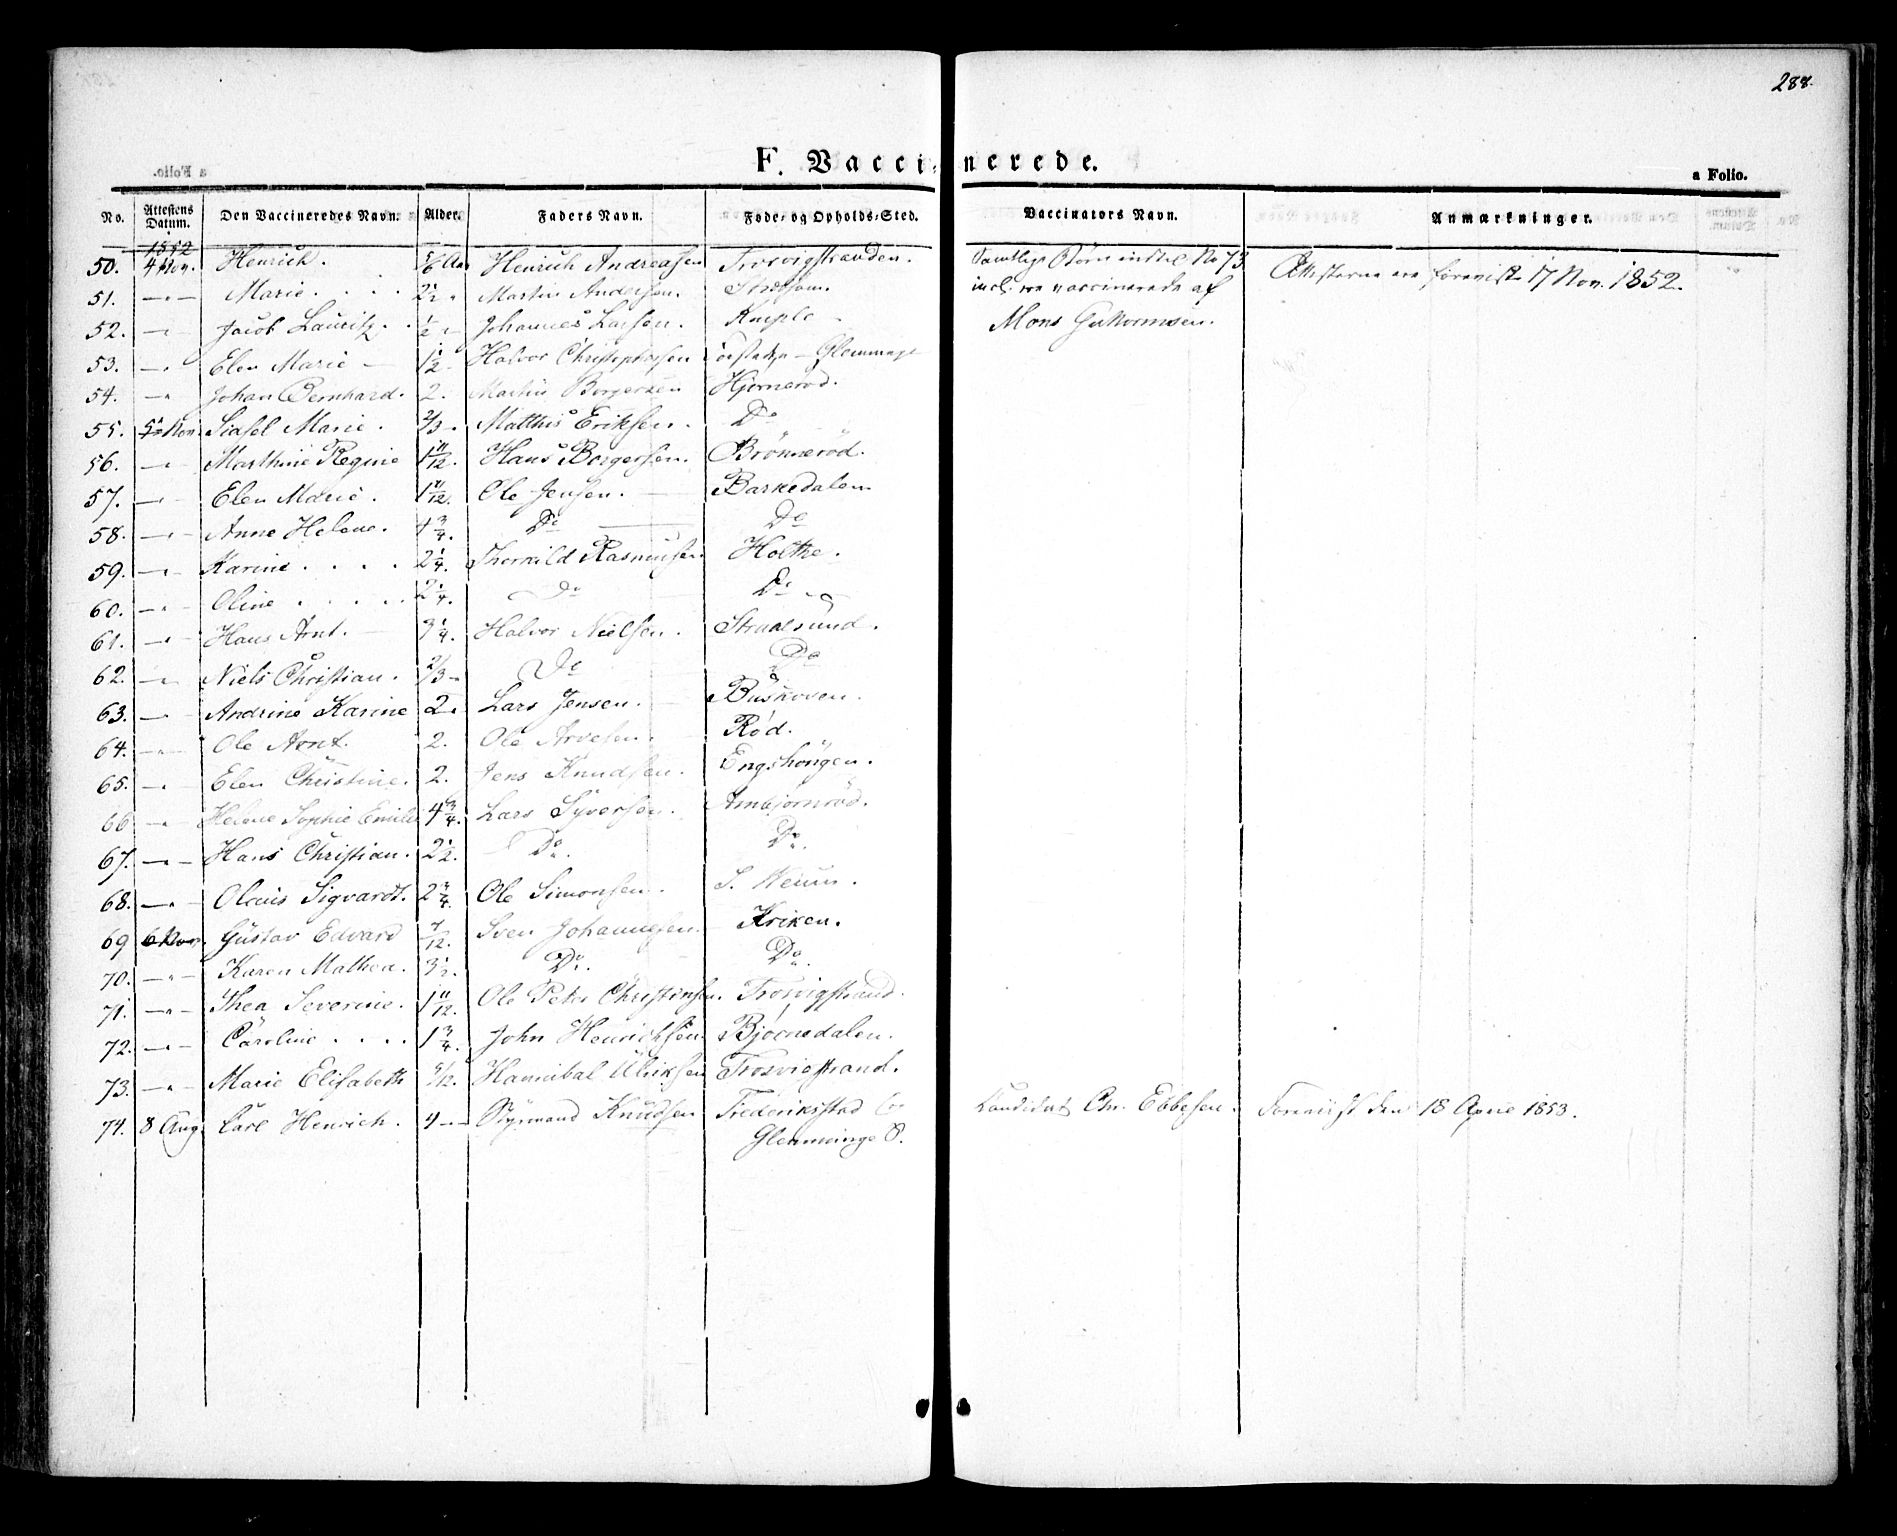 288.
F. Vaccinerede.
a Folio.
No. Attestens Datum. Den Vaccineredes Navn. Alder. Faders Navn. Føde- og Opholds-Sted. Vaccinators Navn. Anmærkninger.
1852
50. 4 Nov. Henrich. 5/6 Aar Henrich Andreasen Trosvigstranden. Samtlige Børn indtil No 73 Attesterne ere foreviste 17 Nov. 1852.
51. — " — Marie . . . . 2 1/2 " Martin Andersen. incl. ere vaccinerede af
52. — " Jacob Lauritz . . 1/2 " Johannes Larsen. Mons Guttormsen.
53. — " Elen Marie — 1 1/2 Halvor Christophersen Glemminge
54. — " Johan Bernhard. 2. Martin Borgersen Hjørnerød.
55. 5 Nov. Sidsel Marie. 2/3 " Matthis Eriksen. Do
56. — " Marthine Regine 1 11/12. Hans Borgersen. Brønnerød.
57. — " Elen Marie. 1 11/12. Ole Jensen. — Barkedalen
58. — " — Anne Helene. 4 3/4. Do — Do
59. — " Karine . . . . 2 1/4. Thorkild Rasmussen Holthe.
60. — " Oline . . . . 2 1/4. Do Do
61. — " Hans Arnt. — 3 1/4. Halvor Nielsen. Stradsund.
62. — " Niels Christian. 2/3 " Do Do
63. — " Andrine Karine 2. Lars Jensen. Buskoven.
64. — " — Ole Arnt. 2. Ole Arvesen. Rød.
65. — " Elen Christine. 2. Jens Knudsen. Engshøngen.
66 — " Helene Sophie Emilie 4 3/4. Lars Syversen. Ambjørnrød.
67. — " — Hans Christian. 2 1/2. Do. Do.
68. — " Olaus Sigvardt. 2 3/4. Ole Simonsen.
69 6 Nov. Gustav Edvard 7/12. Sven Johannesen. Kriken.
70. — " — Karen Mathea. 3 1/2. Do. Do.
71. — " — Thea Severine. 1 11/12. Ole Peter Christensen. Trosvigstrand.
72. — " — Caroline . . . . 1 3/4. John Henrichsen. Bjørnedalen.
73. — " — Marie Elisabeth 5/12. Hannibal Ulriksen Trosvigstrand.
74. 8 Aug. Carl Henrich. 4 — Styrmand Knudsen Frederiksstad Candidat Chr. Ebbesen. Forevist den 18 April 1853.
Glemminge P.